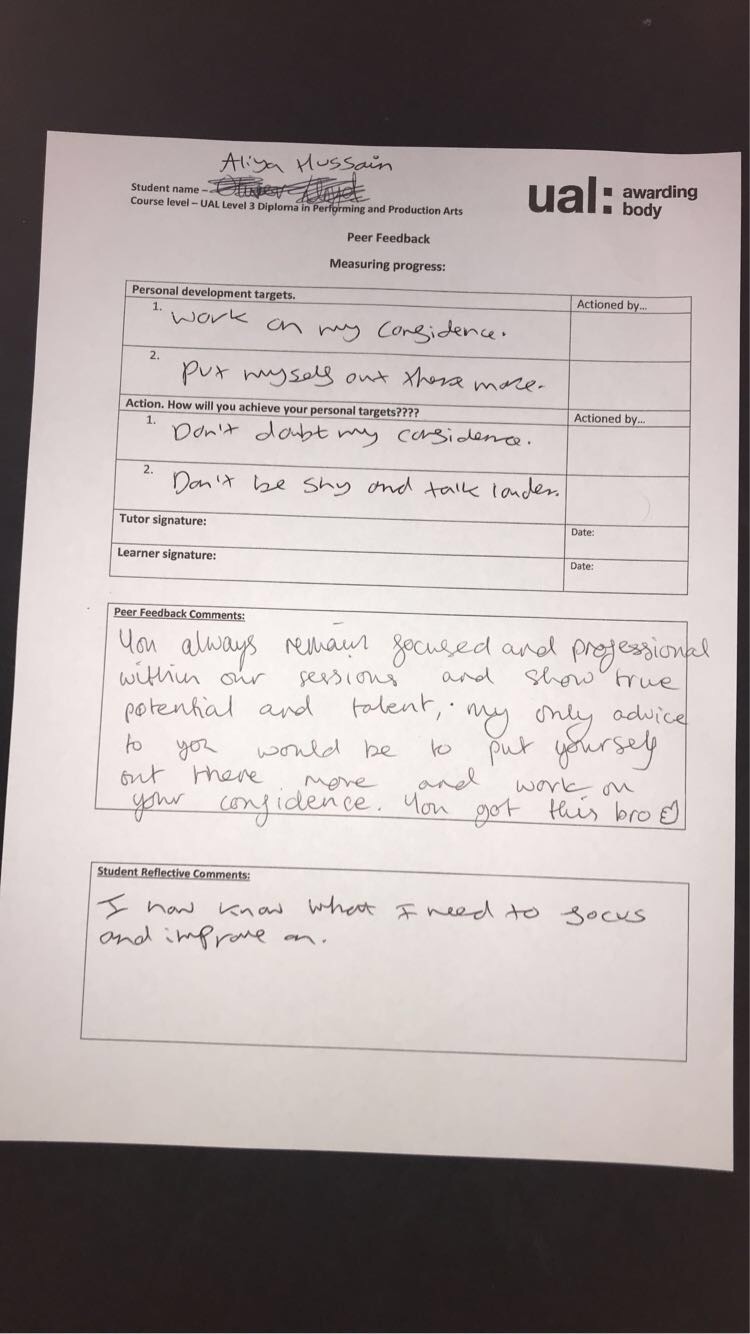 Aliya Hussain
Student name –
Course level – UAL Level 3 Diploma in Performing and Production Arts
ual: awarding
body
Peer Feedback
Measuring progress:
Personal development targets.
Actioned by...
1. Work on my confidence.
2. Put myself out there more.
Action. How will you achieve your personal targets????
Actioned by...
1. Don't doubt my confidence.
2. Don't be shy and talk louder.
Tutor signature:
Date:
Learner signature:
Date:
Peer Feedback Comments:
You always remain focused and professional
within our sessions and show true
potential and talent, my only advice
to you would be to put yourself
out there more and work on
your confidence. You got this bro
Student Reflective Comments:
I now know what I need to focus
and improve on.